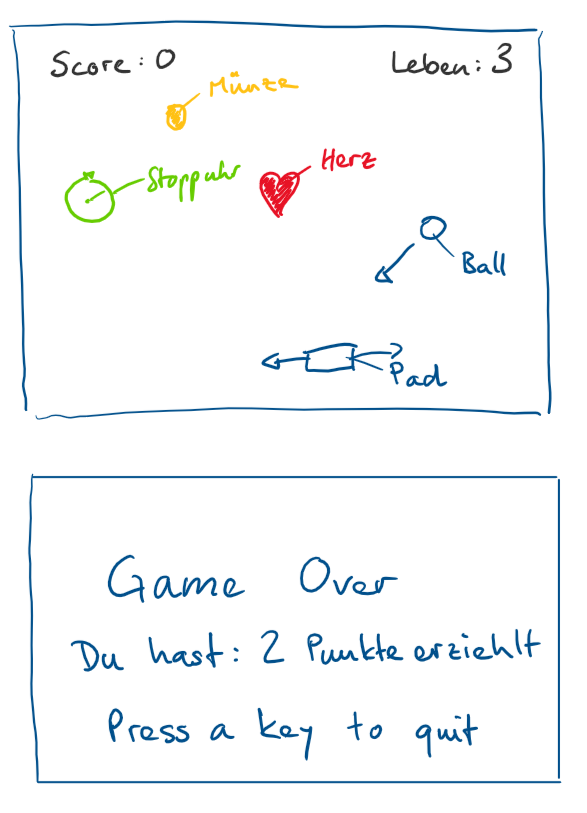 Score: 0
Leben: 3
Münze
Stoppuhr
Herz
Ball
Pad
Game Over
Du hast: 2 Punkte erziehlt
Press a key to quit